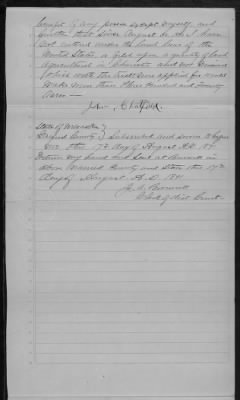 benefit of any person except myself, and
further that since August 30, 18 I have
not entered under the land laws of the
United States, or filed upon a quantity of land
Agricultural in Character and not Mineral
which with the tracts now applied for would
make more than three Hundred and twenty
Acres —
John
State of
County } Subscribed and sworn to before
me this 17th day of August A.D. 189
Witness my hand and Seal at in
above named County and State this 17th
day of August A.D. 1891
Clerk of Dist Court